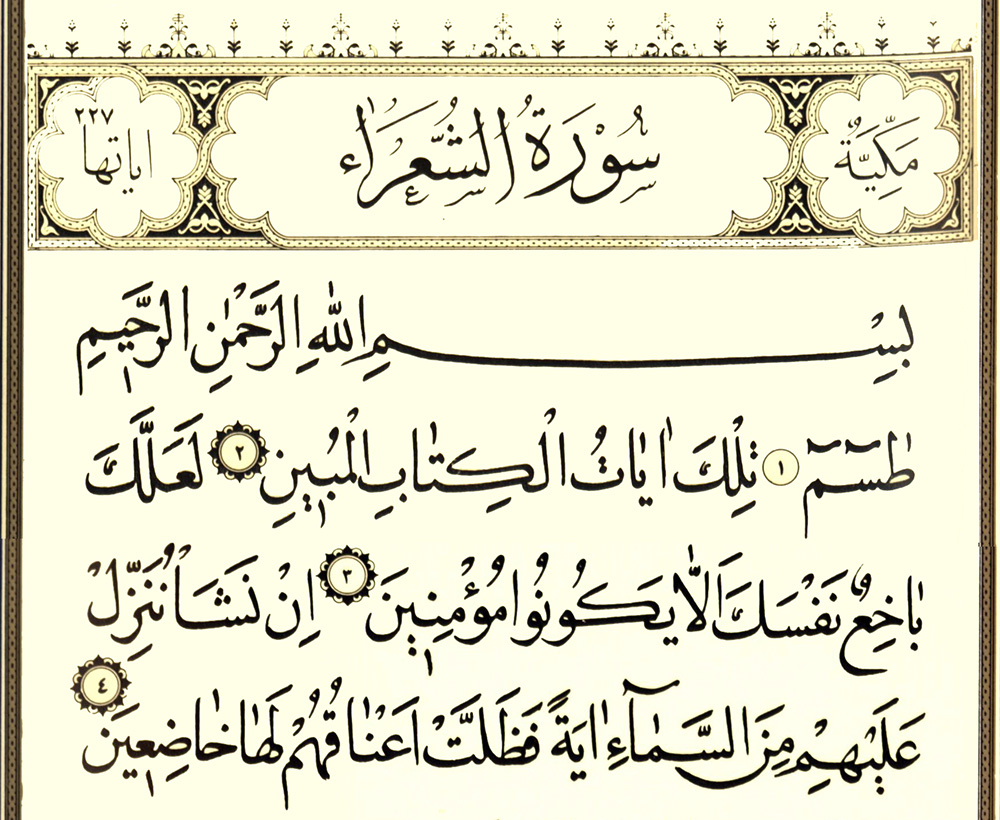 مَكِّيَّةٌ سُوْرَةُ الشُّعَرَاءِ اياتها ٢٢٧
بِسْمِ اللّٰهِ الرَّحْمٰنِ الرَّحٖيمِ
طٰسٓمٓ ١ تِلْكَ اٰيَاتُ الْكِتَابِ الْمُبٖينِ ٢ لَعَلَّكَ
بَاخِعٌ نَفْسَكَ اَلَّا يَكُونُوا مُؤْمِنٖينَ ٣ اِنْ نَشَأْ نُنَزِّلْ
عَلَيْهِمْ مِنَ السَّمَٓاءِ اٰيَةً فَظَلَّتْ اَعْنَاقُهُمْ لَهَا خَاضِعٖينَ ٤